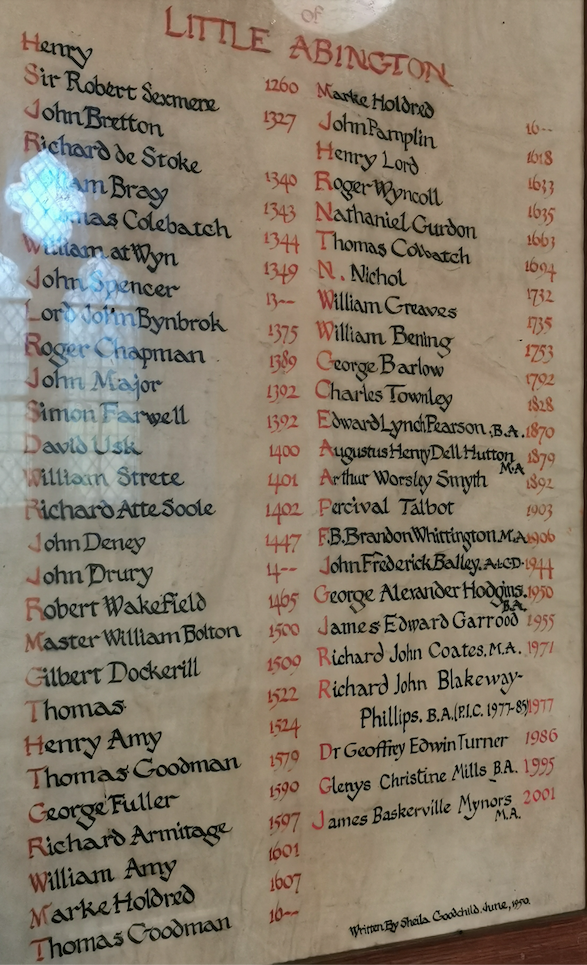 of
LITTLE ABINGTON
Henry 1260
Sir Robert Sexmere 1327
John Bretton
Richard de Stoke 1340
am Bray 1343
mas Colebatch 1344
William at Wyn 1349
John Spencer 13--
Lord John Bynbrok 1375
Roger Chapman 1389
John Major 1392
Simon Farwell 1392
David Usk 1400
William Strete 1401
Richard Atte Soole 1402
John Deney 1447
John Drury 14--
Robert Wakefield 1465
Master William Bolton 1500
Gilbert Dockerill 1509
Thomas 1522
Henry Amy 1524
Thomas Goodman 1579
George Fuller 1590
Richard Armitage 1597
William Amy 1601
Marke Holdred 1607
Thomas Goodman 16--
Marke Holdred 16--
John Pamplin 1618
Henry Lord 1633
Roger Wyncoll 1635
Nathaniel Gurdon 1663
Thomas Colbatch 1694
N. Nichol 1732
William Greaves 1735
William Bening 1753
George Barlow 1792
Charles Townley 1828
Edward Lynch Pearson, B.A. 1870
Augustus Henry Dell Hutton M.A 1879
Arthur Worsley Smyth 1892
Percival Talbot 1903
F.B. Brandon Whittington. M.A. 1906
John Frederick Balley. A.L.C.D. 1944
George Alexander Hodgins. B.A. 1950
James Edward Garrood 1955
Richard John Coates. M.A. 1971
Richard John Blakeway-
Phillips. B.A. (P.I.C. 1977-85) 1977
Dr Geoffrey Edwin Turner 1986
Glenys Christine Mills B.A. 1995
James Baskerville Mynors M.A. 2001
Written By Sheila Goodchild. June, 1950.